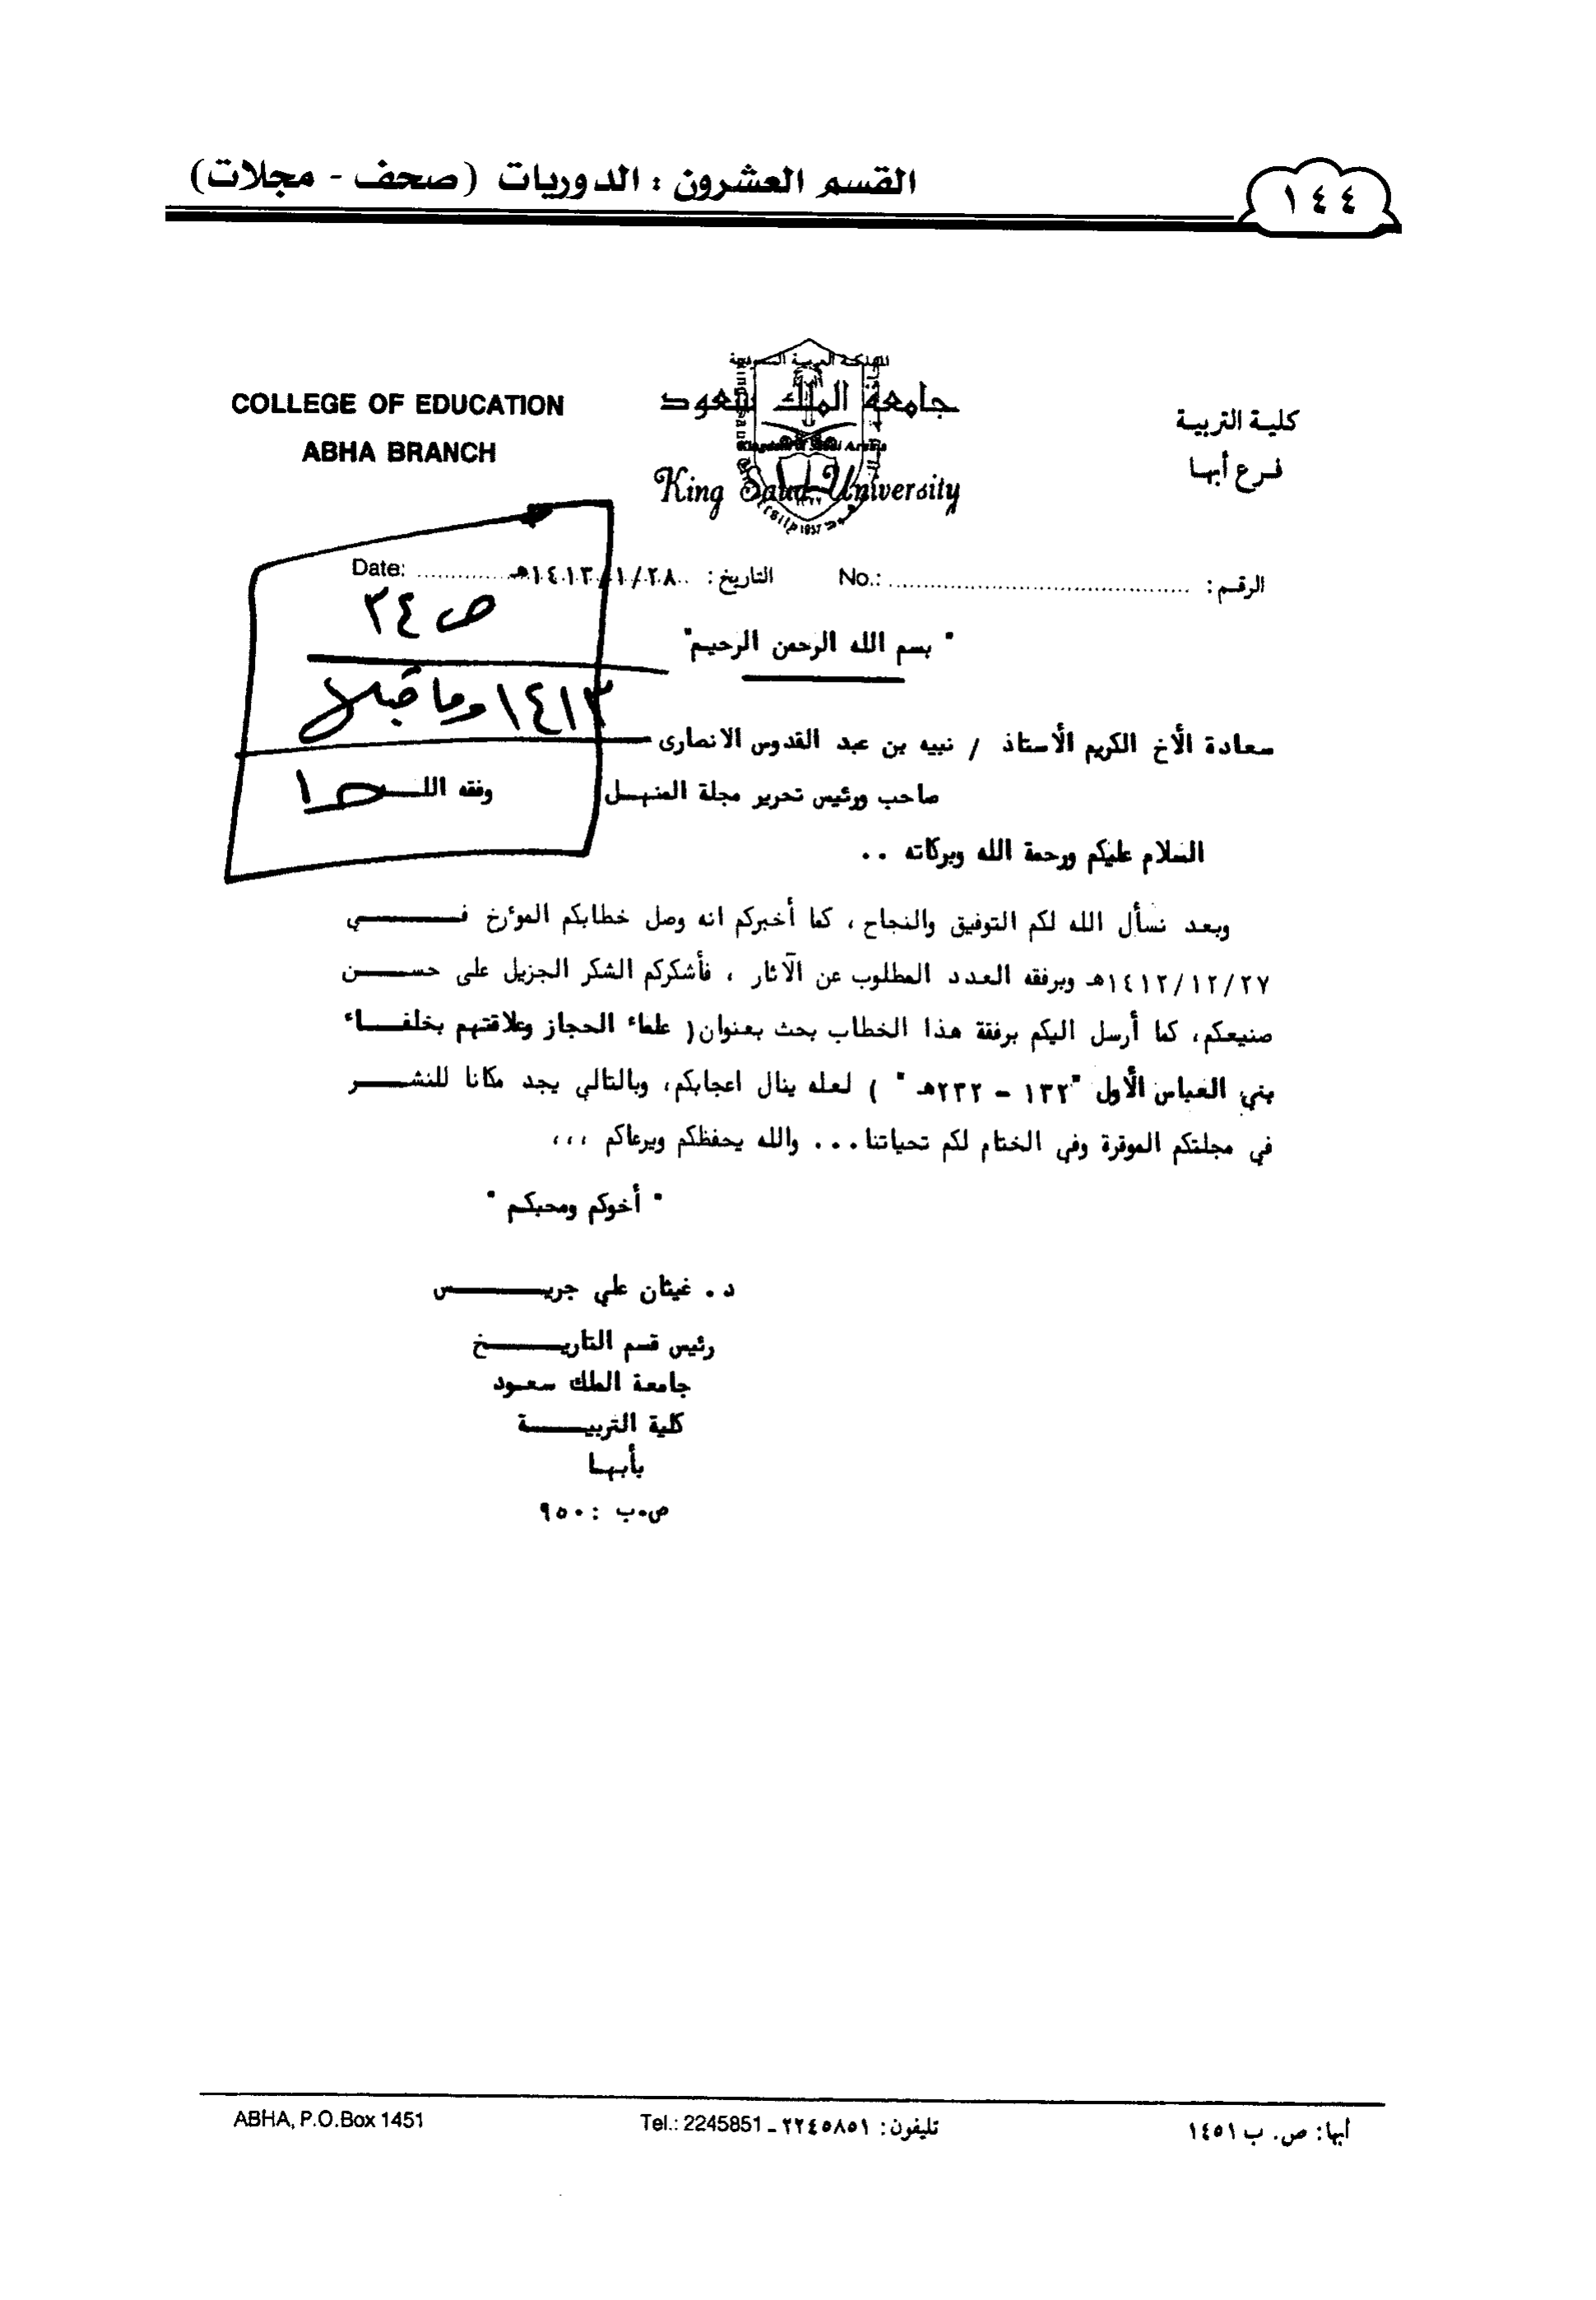 القسم العشرون : الدوريات (صحف - مجلات)
١٤٤
COLLEGE OF EDUCATION
ABHA BRANCH
المملكة العربية السعودية
جامعة الملك سعود
Kingdom of Saudi Arabia
King Saud University
كلية التربية
فرع أبها
الرقم : No.:
التاريخ : ١٤١٣/١/٢٨هـ Date:
ص ٣٤
١٤١٣ وما قبلا
" بسم الله الرحمن الرحيم"
سعادة الأخ الكريم الأستاذ / نبيه بن عبد القدوس الانصارى
صاحب ورئيس تحرير مجلة المنهـل وفقه اللـه
السلام عليكم ورحمة الله وبركاته ..
وبعد نسأل الله لكم التوفيق والنجاح ، كما أخبركم انه وصل خطابكم الموءرخ فـــــي
١٤١٢/١٢/٢٧هـ وبرفقه العدد المطلوب عن الآثار ، فأشكركم الشكر الجزيل على حســـن
صنيعكم، كما أرسل اليكم برفقة هذا الخطاب بحث بعنوان( علماء الحجاز وعلاقتهم بخلفـــاء
بني العباس الأول "١٣٢ - ٢٣٢هـ " ) لعله ينال اعجابكم، وبالتالي يجد مكانا للنشـــر
في مجلتكم الموقرة وفي الختام لكم تحياتنا... والله يحفظكم ويرعاكم ،،،
" أخوكم ومحبكم "
د . غيثان علي جريــــس
رئيس قسم التاريـــخ
جامعة الملك سعود
كلية التربيــــة
بأبها
ص.ب : ٩٥٠
أبها: ص. ب ١٤٥١
تليفون: ٢٢٤٥٨٥١ - Tel.: 2245851
ABHA, P.O.Box 1451